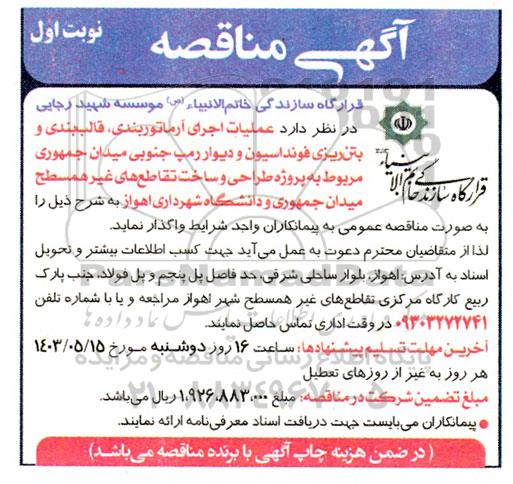 نوبت اول
آگهی مناقصه
قرارگاه سازندگی خاتم الانبیاء (ص) موسسه شهید رجایی
در نظر دارد عملیات اجرای آرماتوربندی، قالببندی و
بتن‌ریزی فونداسیون و دیوار رمپ جنوبی میدان جمهوری
مربوط به پروژه طراحی و ساخت تقاطع‌های غیر همسطح
میدان جمهوری و دانشگاه شهرداری اهواز به شرح ذیل را
قرارگاه سازندگی خاتم الانبیاء
به صورت مناقصه عمومی به پیمانکاران واجد شرایط واگذار نماید.
لذا از متقاضیان محترم دعوت به عمل می‌آید جهت کسب اطلاعات بیشتر و تحویل
اسناد به آدرس: اهواز، بلوار ساحلی شرقی، حد فاصل پل پنجم و پل فولاد، جنب پارک
ربیع کارگاه مرکزی تقاطع‌های غیر همسطح شهر اهواز مراجعه و یا با شماره تلفن
۰۹۳۰۳۲۷۲۷۴۱ در وقت اداری تماس حاصل نمایند.
آخرین مهلت تسلیم پیشنهادها: ساعت ۱۶ روز دوشنبه مورخ ۱۴۰۳/۰۵/۱۵
هر روز به غیر از روزهای تعطیل
مبلغ تضمین شرکت در مناقصه: مبلغ ۱.۹۲۶.۸۸۳.۰۰۰ ریال می‌باشد.
● پیمانکاران می‌بایست جهت دریافت اسناد معرفی‌نامه ارائه نمایند.
( در ضمن هزینه چاپ آگهی با برنده مناقصه می‌باشد )
پایگاه اطلاع رسانی مناقصه و مزایده
۰۲۱-۸۸۳۴۹۶۷۰-۵